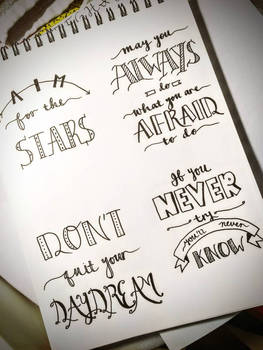 AIM
for the
STARS
may you
ALWAYS
do
what you are
AFRAID
to do
DON'T
quit your
DAYDREAM
If you
NEVER
try
you'll never
KNOW